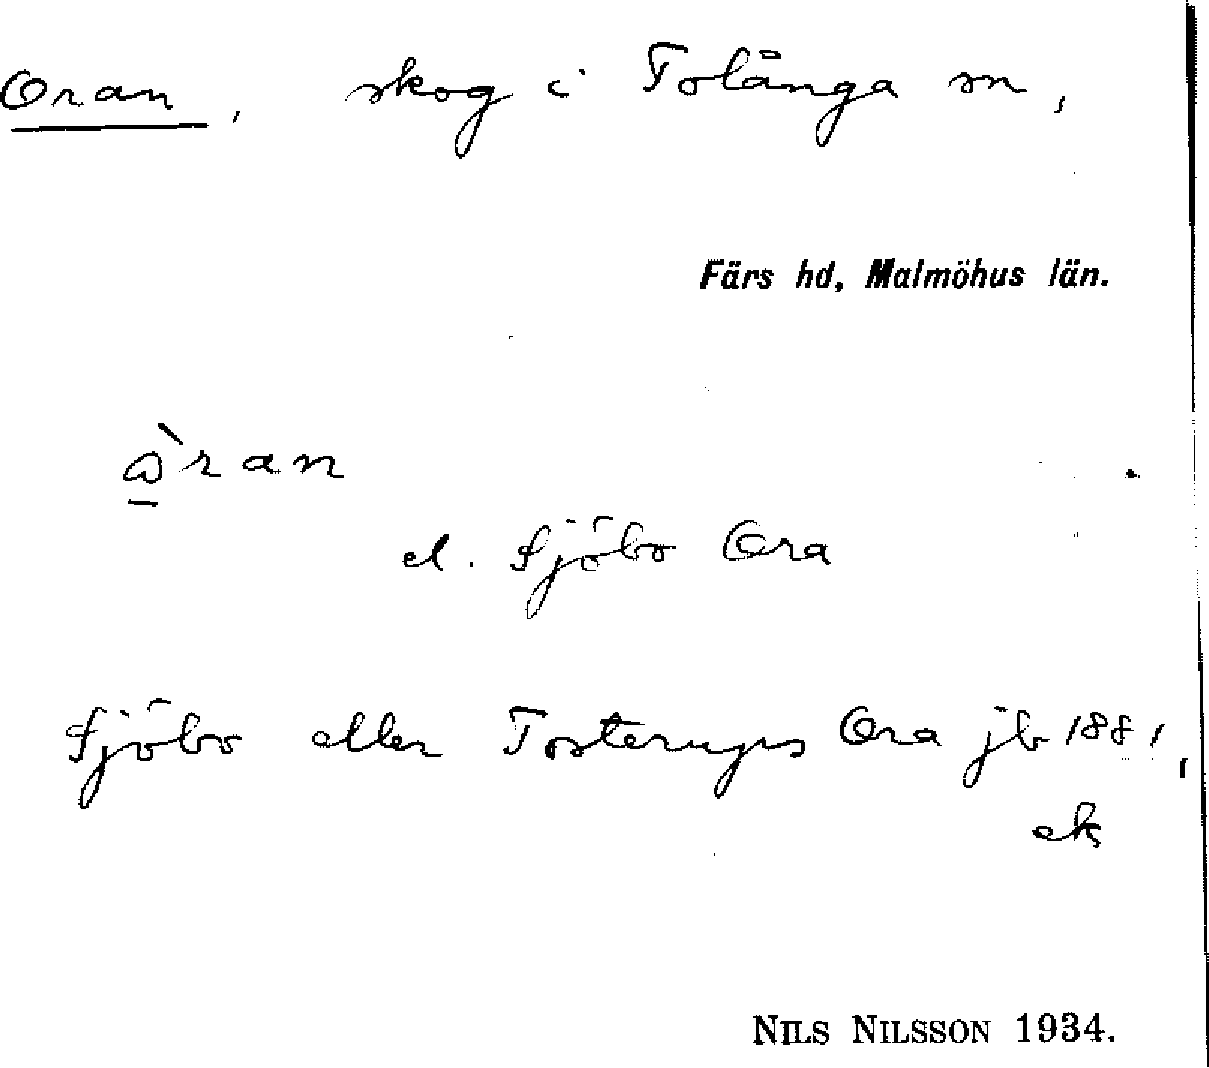 Oran, skog i Tolånga sn,
Färs hd, Malmöhus län.
ὼ̱ran
el. Sjöbo Ora
Sjöbo eller Tosterups Ora jb 1881,
ek
NILS NILSSON 1934.